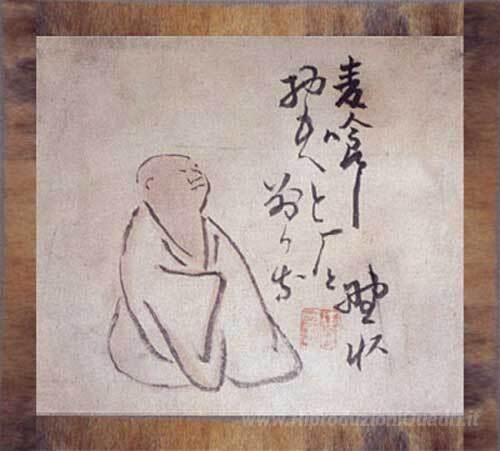 麦喰し
厂と
おもへと
別れ哉
埜水
www.RiproduzioniQuadri.it